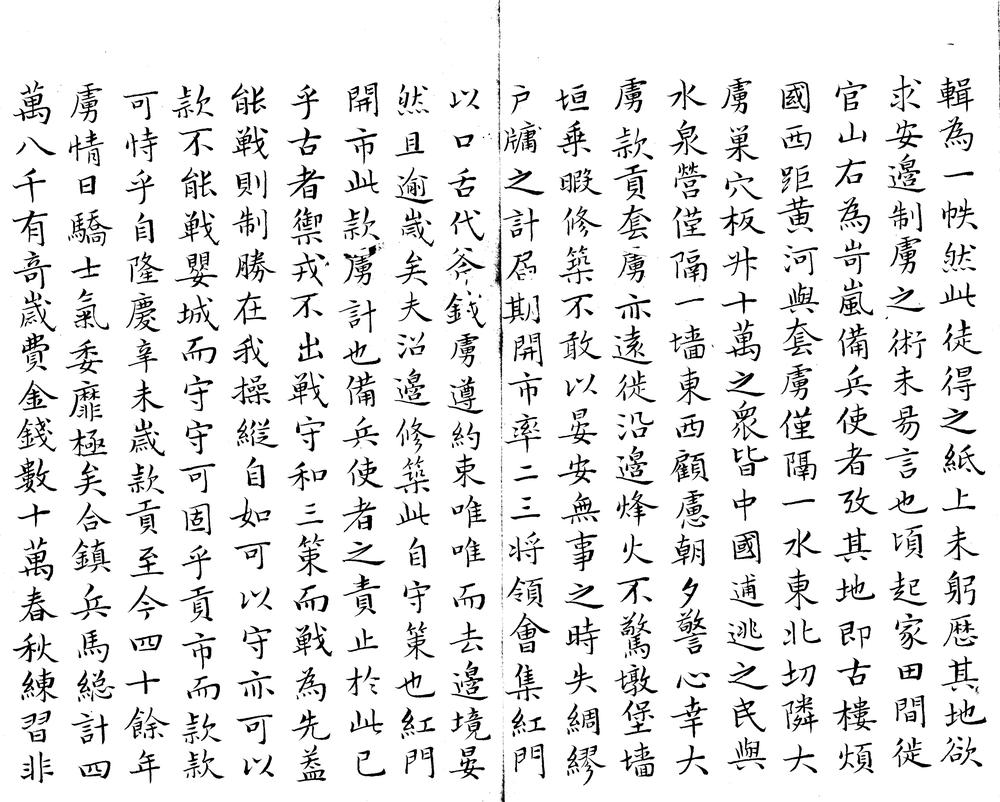 輯為一帙然此徒得之紙上未躬歷其地欲
求安邉制虜之術未昜言也頃起家田間徙
官山右為岢嵐備兵使者攷其地即古樓煩
國西距黃河與套虜僅隔一水東北切隣大
虜巢穴板升十萬之衆皆中國逋逃之民與
水泉營僅隔一墻東西顧慮朝夕警心幸大
虜款貢套虜亦遠徙沿邉烽火不驚墩堡墻
垣乗暇修築不敢以晏安無事之時失綢繆
戸牖之計屆期開市率二三将領會集紅門
以口舌代斧鉞虜遵約束唯唯而去邉境晏
然且逾歲矣夫沿邉修築此自守策也紅門
開市此款虜計也備兵使者之責止於此已
乎古者禦戎不出戦守和三策而戦為先葢
能戦則制勝在我操縦自如可以守亦可以
款不能戦嬰城而守守可固乎貢市而款款
可恃乎自隆慶辛未歲款貢至今四十餘年
虜情日驕士氣委靡極矣合鎮兵馬緫計四
萬八千有竒歲費金錢數十萬春秋練習非